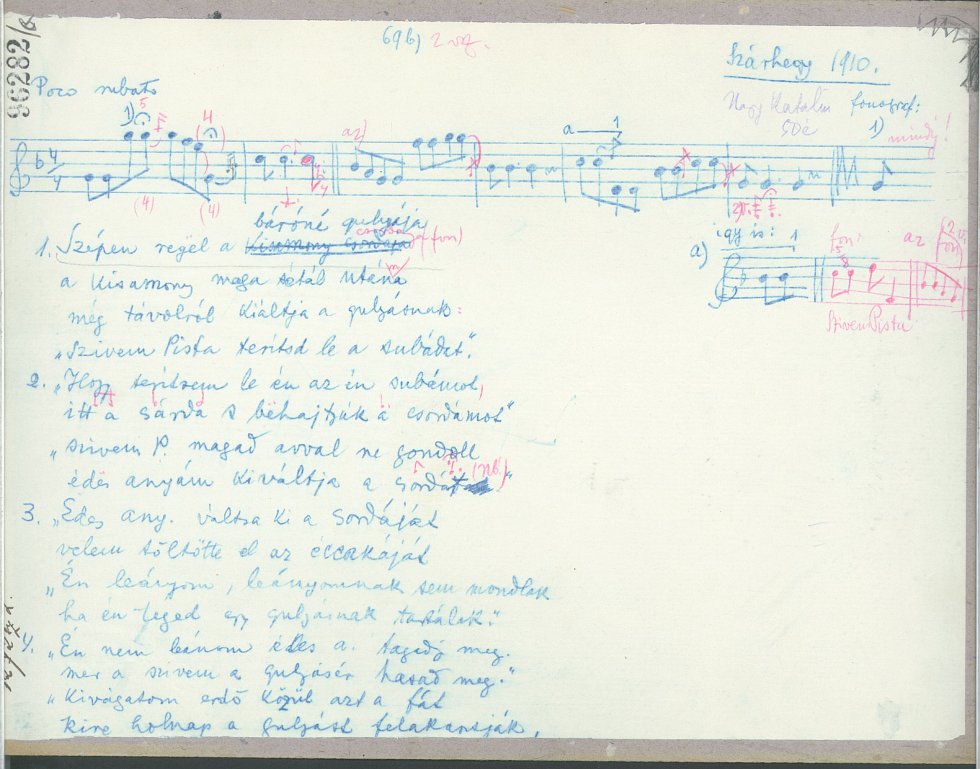 69b) 2 vsz.
96282/B
Szárhegy 1910.
Poco rubato
Nagy Katalin fonograf:
1) mindig!
1) 5
(4)
a)
a 1
4/4
(4) (4)
báróné gulyája
1. Szépen legel a kisasszony csordája (fon)
így is: 1
a)
fon.
az
a kisasszony maga sétál utána
még távolról kiáltja a gulyásnak:
Szivem Pista
„Szivem Pista terítsd le a subádat."
2. „Hogy terítsem le én az én subámot,
itt a sárda s béhajtják a csordámot"
„szivem P. magad avval ne gondoll
édes anyám kiváltja a sordát"
3. „Édes any. váltsa ki a sordáját
velem töltötte el az éccakáját
„Én leányom, leányomnak sem mondlak
ha én téged egy gulyásnak tartálak."
4. „Én nem bánom édes a. tagadj meg.
mer a szivem a gulyásér hasad meg."
„Kivágatom erdő közül azt a fát
kire holnap a gulyást felakasztják.